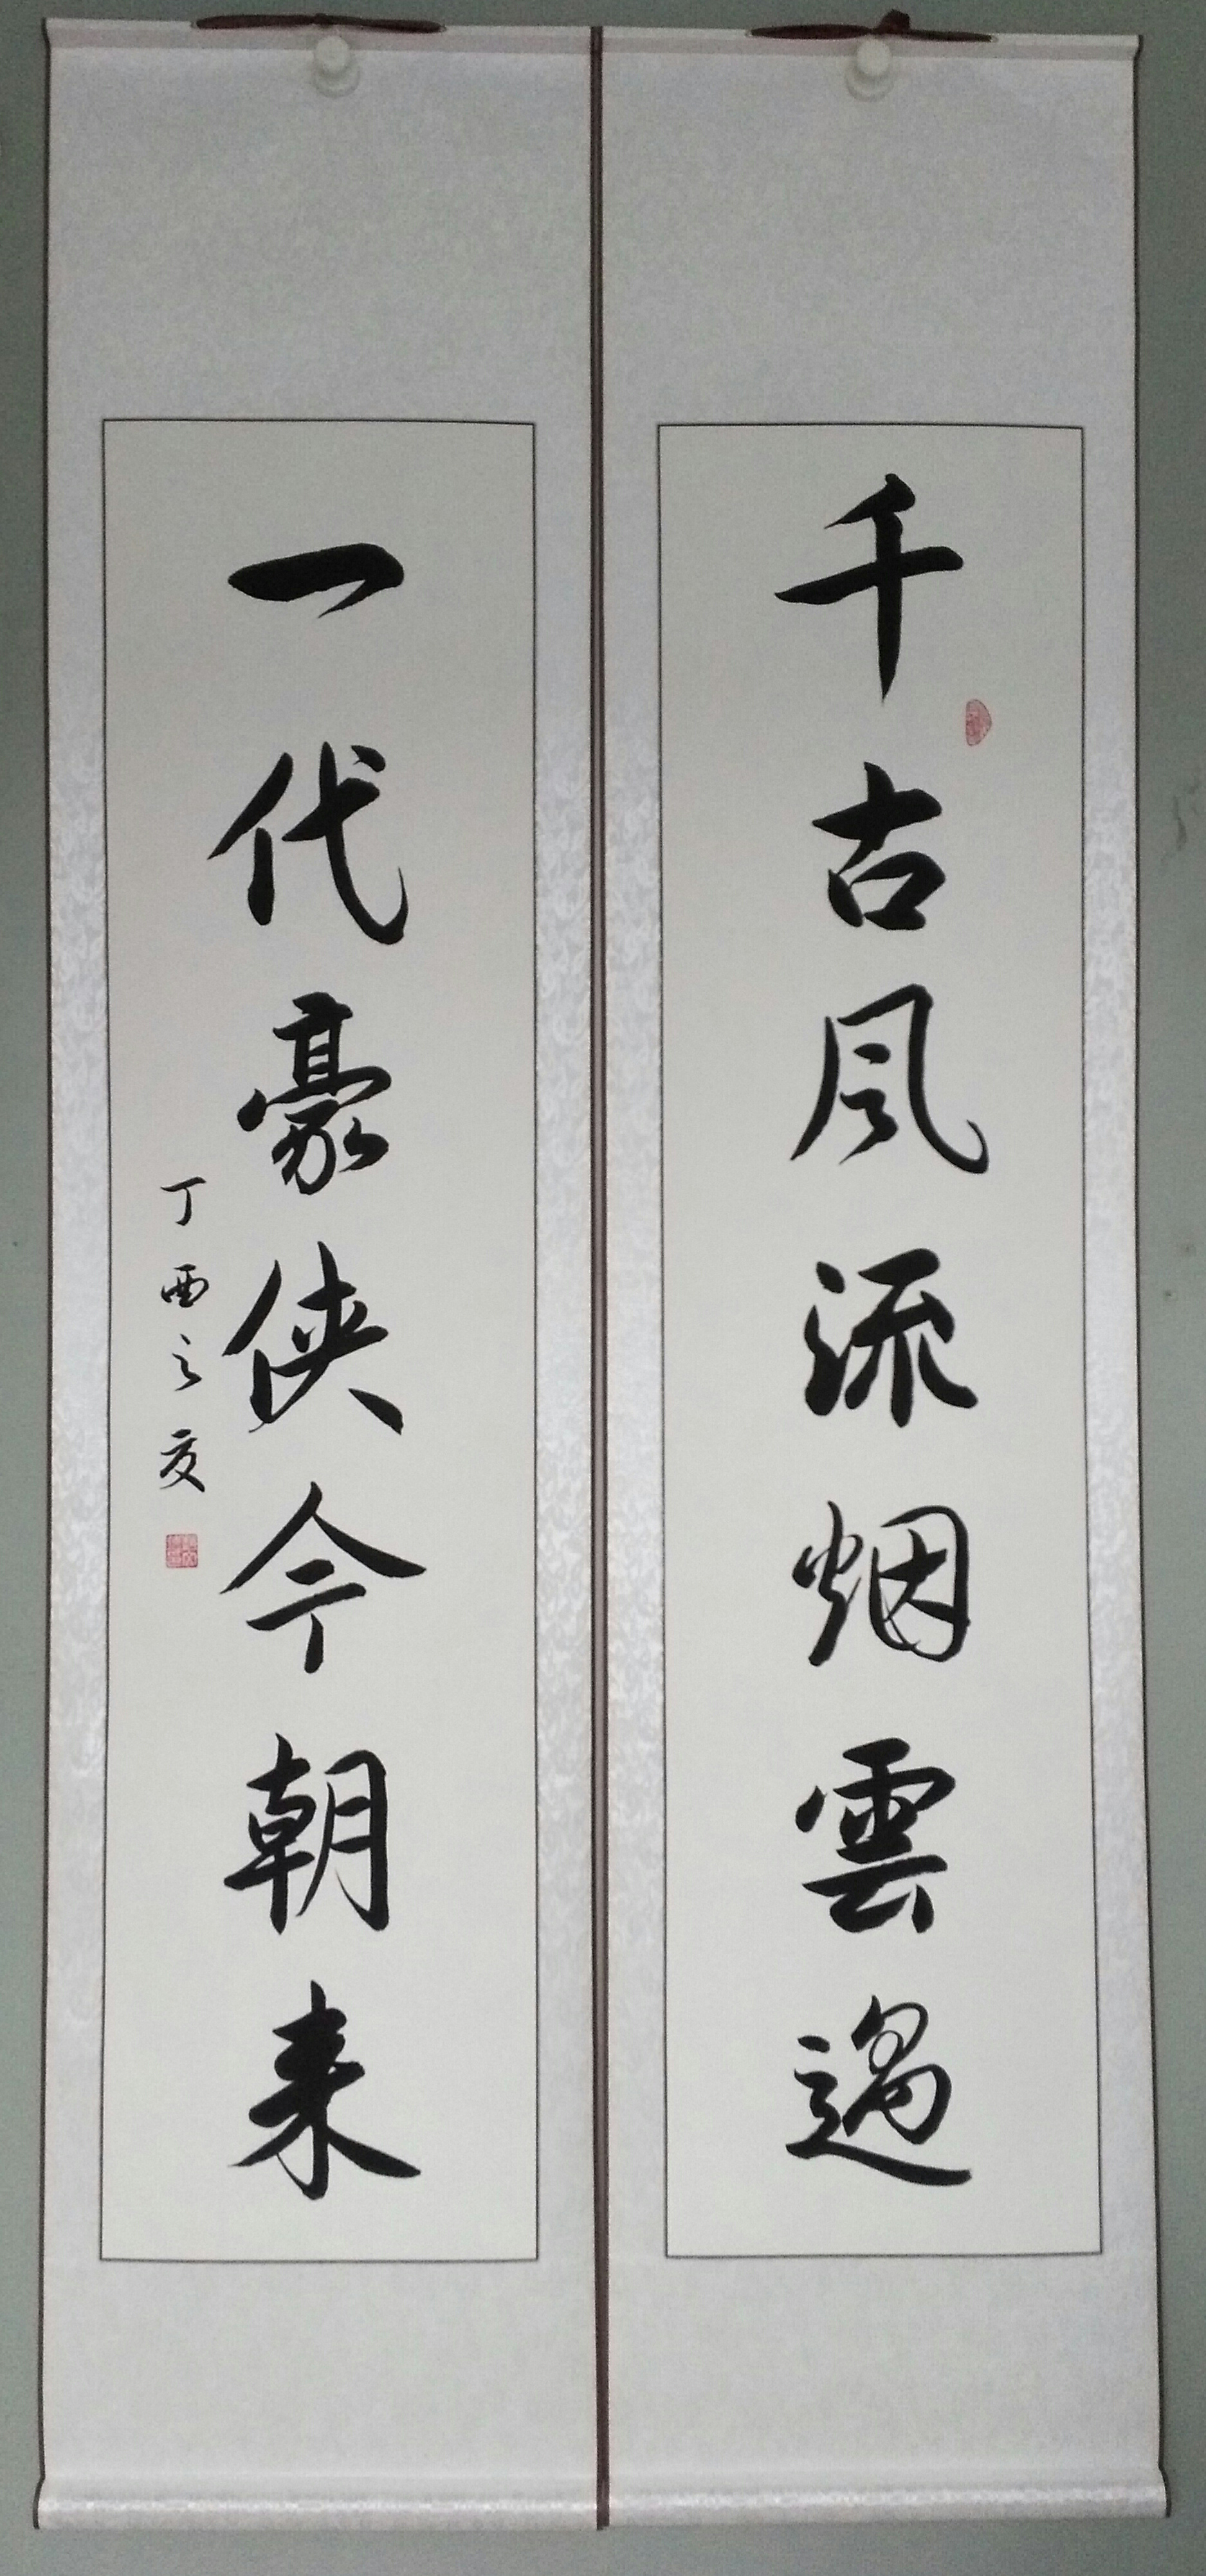 千古风流烟雲過
一代豪侠今朝来
丁酉之夏